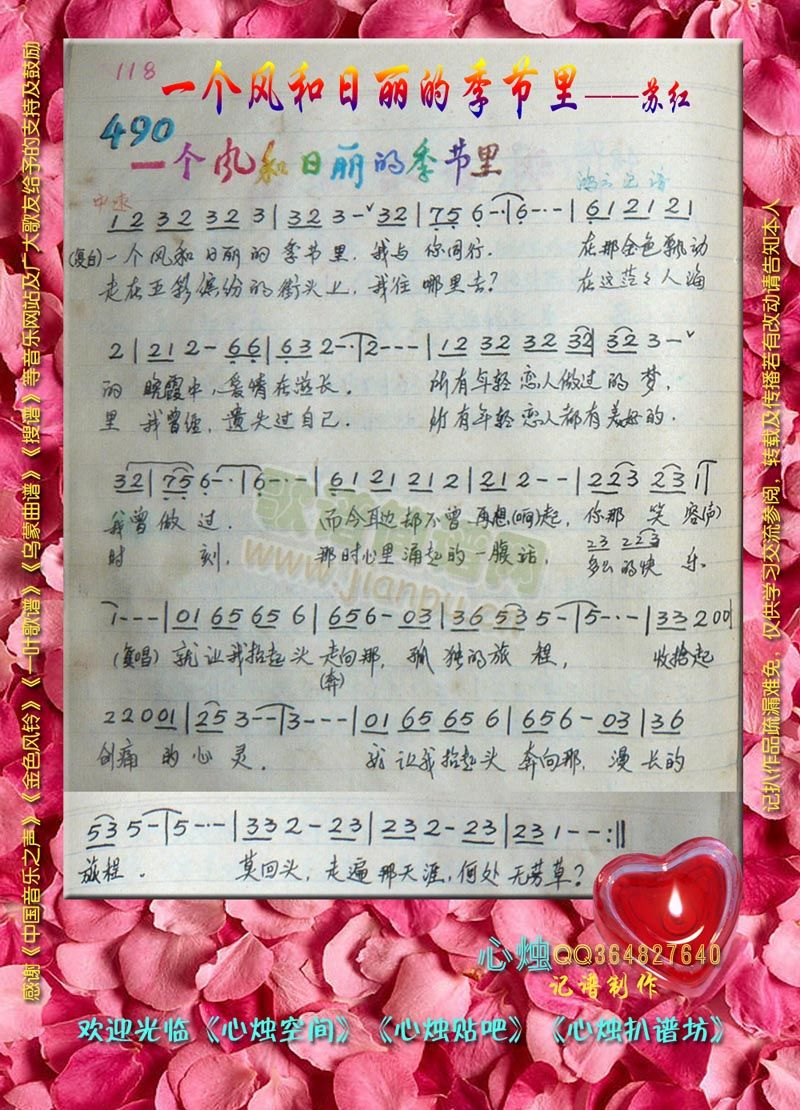 118
一个风和日丽的季节里——苏红
490
一个风和日丽的季节里
中速
1 2 3 2 3 2 3 | 3 2 3 -ˇ 3 2 | 7 5 6 - · | 6 - · - | 6 1 2 1 2 1
(复白)一个风和日丽的季节里，我与你同行. 在那金色飘动
走在五彩缤纷的街头上，我往哪里去？ 在这茫々人海
2 | 2 1 2 - 6 6 | 6 3 2 - · | 2 - - - | 1 2 3 2 3 2 3 2 | 3 2 3 -ˇ
的晚霞中，爱情在滋长. 所有年轻恋人做过的梦，
里我曾经，遗失过自己. 所有年轻恋人都有美好的.
3 2 | 7 5 6 - · | 6 - · - | 6 1 2 1 2 1 2 | 2 1 2 - - | 2 2 3 2 3 1 |
我曾做过. 而今耳边却不曾再想(响)起，你那笑容(声)
2 3 2 2 3
时刻， 那时心里涌起的一腹话， 多么的快乐.
1 - - - | 0 1 6 5 6 5 6 | 6 5 6 - 0 3 | 3 6 5 3 5 - | 5 - · - | 3 3 2 0 0 1
(复唱)就让我抬起头走向那，孤独的旅程， 收拾起
(奔)
2 2 0 0 1 | 2 5 3 - - | 3 - - - | 0 1 6 5 6 5 6 | 6 5 6 - 0 3 | 3 6
创痛的心灵. 就让我抬起头奔向那，漫长的
5 3 5 - | 5 - · - | 3 3 2 - 2 3 | 2 3 2 - 2 3 | 2 3 1 - - :‖
旅程. 莫回头，走遍那天涯，何处无芳草？
歌谱简谱网
www.jianpu.cn
感谢《中国音乐之声》《金色风铃》《一叶歌谱》《乌蒙曲谱》《搜谱》等音乐网站及广大歌友给予的支持及鼓励
记扒作品疏漏难免，仅供学习交流参阅，转载及传播若有改动请告知本人
心烛QQ364827640
记谱制作
欢迎光临《心烛空间》《心烛贴吧》《心烛扒谱坊》